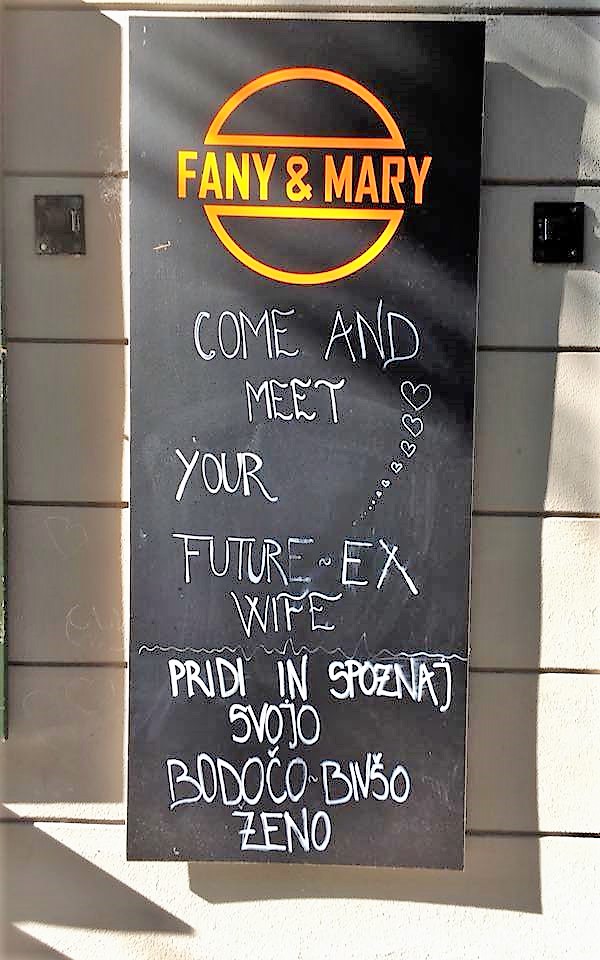 FANY & MARY
COME AND
MEET
YOUR
FUTURE~EX
WIFE
PRIDI IN SPOZNAJ
SVOJO
BODOČO~BIVŠO
ŽENO